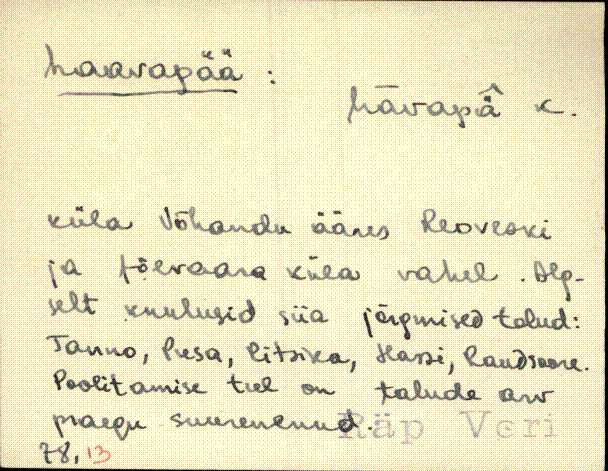 haavapää :
hāvapä̂ k.
küla Võhandu ääres Leoveski
ja Jõevaara küla vahel. Alg-
selt kuulusid siia järgmised talud:
Janno, Presa, Ritsika, Hassi, Raudsoore.
Poolitamise teel on talude arv
praegu suurenenud.
Räp Veri
78, 13